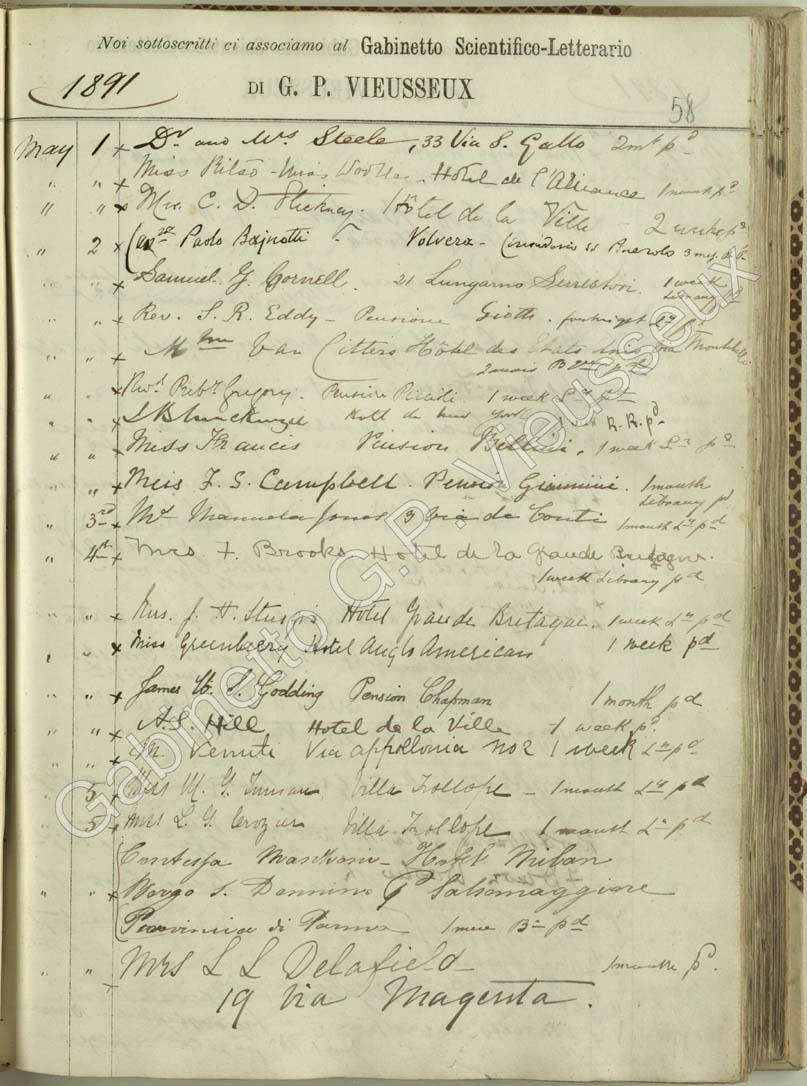 Noi sottoscritti ci associamo al Gabinetto Scientifico-Letterario
1891 DI G. P. VIEUSSEUX 58
May 1 x Dr and Mrs Steele, 33 Via S. Gallo 2 mth pd
" " x Miss Hotel de l'Alliance 1 month pd
" " x C. D. Hôtel de la Ville - 2 weeks pd
" 2 x Paolo Bajnotti - Volvera - Circondario di Pinerolo 3 mes.
" " x Samuel G. Cornell. 21 Lungarno Serristori. 1 week
Library pd
" " x Rev. S. R. Eddy - Pensione Giotto. fortnight Ly pd
" " x Mme Van Citters Hôtel des Etats Unis via Montebello
2 mois B pd
" " x Gregory. Pension 1 week Ly pd
" " x Hotel de New York 1 week R. R. pd
" " x Miss Francis Pension Bellini. 1 week Ly pd
" " x Miss F. S. Campbell. Pension 1 month
Library pd
" 3rd x Manuela Jones 3 Via de Conti 1 month Ly pd
" 4th x Mrs F. Brooks Hotel de la Grande Bretagne.
1 week Library pd
" " x Mrs. J. H. Sturgis Hotel Grande Bretagne. 1 week Ly pd
" " x Miss Greenberry Hotel Anglo American 1 week pd
" " x James W. S. Godding Pension Chapman 1 month pd
" " x A. S. Hill Hotel de la Ville 1 week pd
" " x M. Venuti Via appollonia no 2 1 week Ly pd
" 5 x Miss M. G. Inman Villa Trollope - 1 month Ly pd
" 5 x Miss L. G. Crozier Villa Trollope 1 month Ly pd
Contessa Hotel Milan
" " x Borgo S. Donnino p Salsomaggiore
Provincia di Parma 1 mese Bi pd
" " x Mrs L L Delafield 1 month pd.
19 Via Magenta.
Gabinetto G.P. Vieusseux